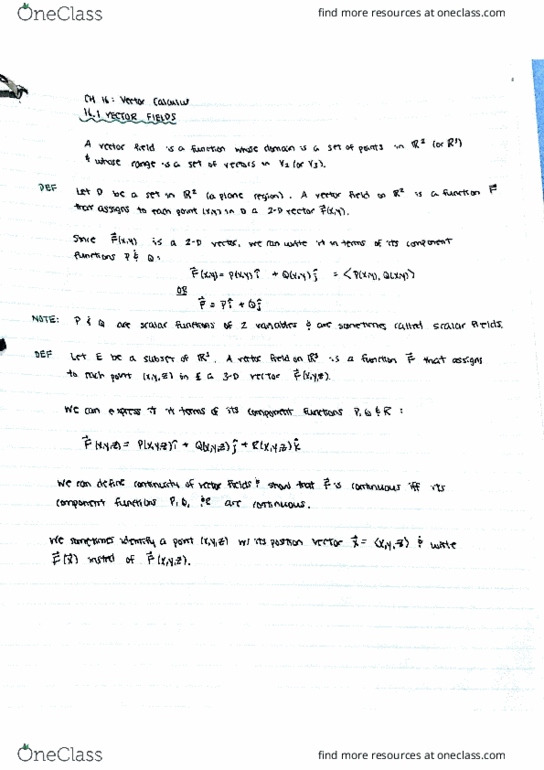 OneClass
find more resources at oneclass.com
CH 16: Vector Calculus
16.1 VECTOR FIELDS
A vector field is a function whose domain is a set of points in ℝ² (or ℝ³)
& whose range is a set of vectors in V₂ (or V₃).
DEF Let D be a set in ℝ² (a plane region). A vector field on ℝ² is a function F⃗
that assigns to each point (x,y) in D a 2-D vector F⃗(x,y).
Since F⃗(x,y) is a 2-D vector, we can write it in terms of its component
functions P & Q:
F⃗(x,y) = P(x,y)î + Q(x,y)ĵ = ⟨P(x,y), Q(x,y)⟩
OR
F⃗ = Pî + Qĵ
NOTE: P & Q are scalar functions of 2 variables & are sometimes called scalar fields.
DEF Let E be a subset of ℝ³. A vector field on ℝ³ is a function F⃗ that assigns
to each point (x,y,z) in E a 3-D vector F⃗(x,y,z).
We can express it terms of its component functions P, Q & R:
F⃗(x,y,z) = P(x,y,z)î + Q(x,y,z)ĵ + R(x,y,z)k̂
We can define continuity of vector fields & show that F⃗ is continuous iff its
component functions P, Q, & R are continuous.
We sometimes identify a point (x,y,z) w/ its position vector x⃗ = ⟨x,y,z⟩ & write
F⃗(x⃗) instead of F⃗(x,y,z).
OneClass
find more resources at oneclass.com